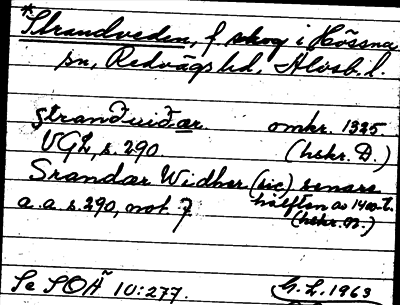 *Strandveden, f. skog i Hössna
sn, Redvägs hd, Älvsb. l.
strandviðær omkr. 1325.
VGL, s. 290. (hskr. D.)
Srandær Widher (sic) senare
a.a. s. 290, not. 7 hälften av 1400-t.
(hskr. B.)
Se SOÄ 10:277. G.L. 1963